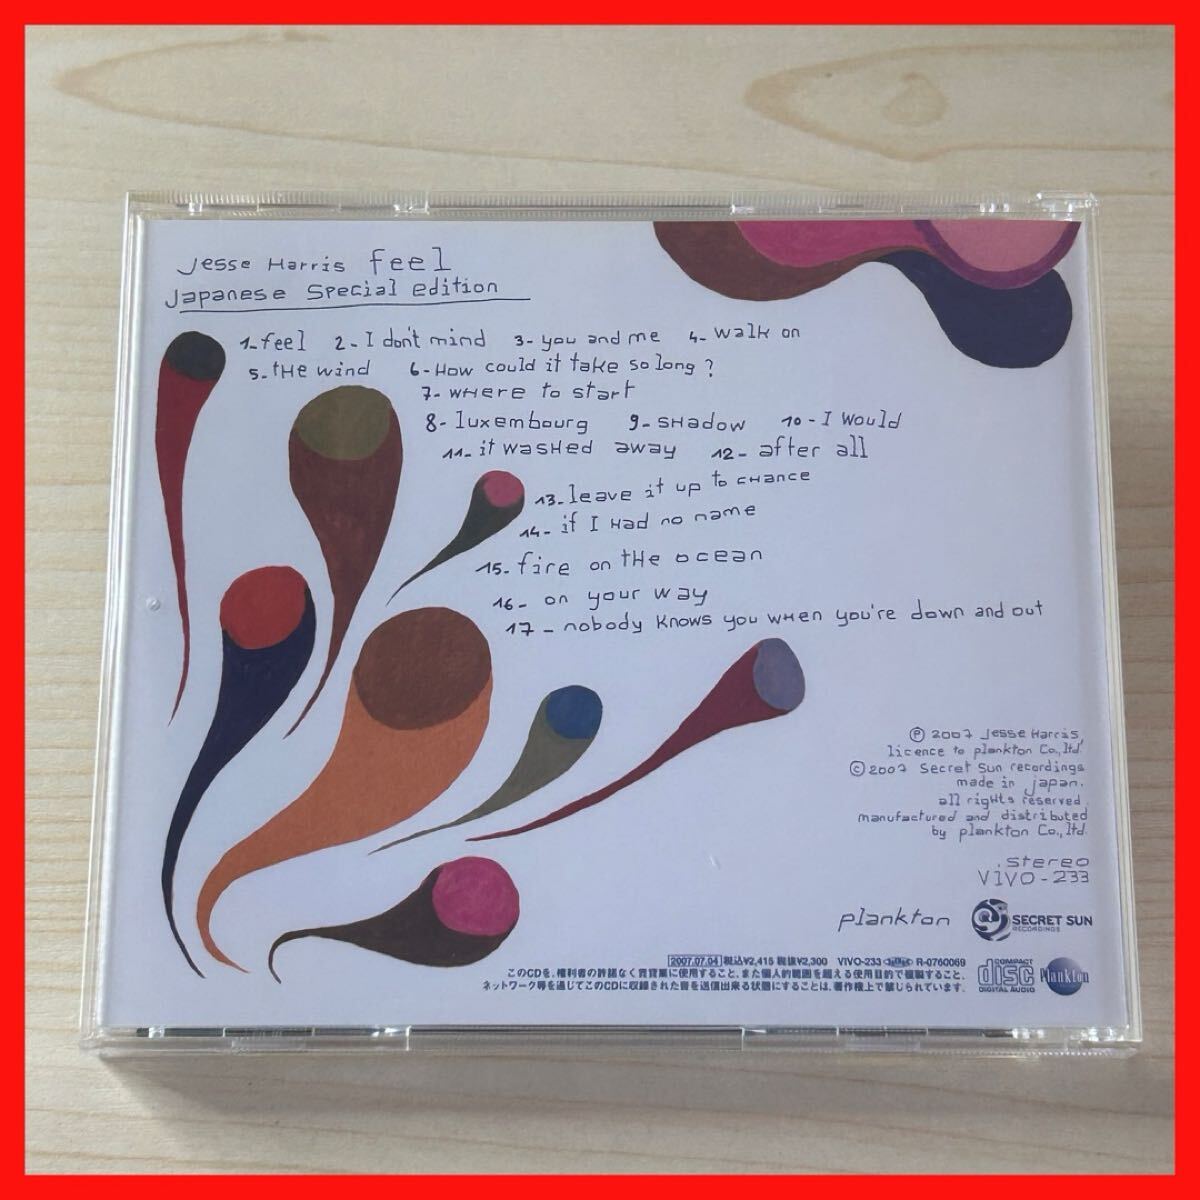 Jesse Harris feel
Japanese Special edition
1- feel 2- I don't mind 3- you and me 4- walk on
5- the wind 6- How could it take so long?
7- where to start
8- luxembourg 9- shadow 10- I would
11- it washed away 12- after all
13- leave it up to chance
14- if I had no name
15- fire on the ocean
16- on your way
17- nobody knows you when you're down and out
℗ 2007 Jesse Harris,
licence to plankton Co.,ltd.
© 2007 Secret Sun recordings
made in japan.
all rights reserved.
manufactured and distributed
by plankton Co.,ltd.
stereo
VIVO-233
plankton SECRET SUN
RECORDINGS
2007.07.04 税込¥2,415 税抜¥2,300 VIVO-233 R-0760069
このCDを、権利者の許諾なく賃貸業に使用すること、また個人的範囲を超える使用目的で複製すること、
ネットワーク等を通じてこのCDに収録された音を送信出来る状態にすることは、著作権上で禁じられています。
COMPACT
disc
DIGITAL AUDIO
Plankton